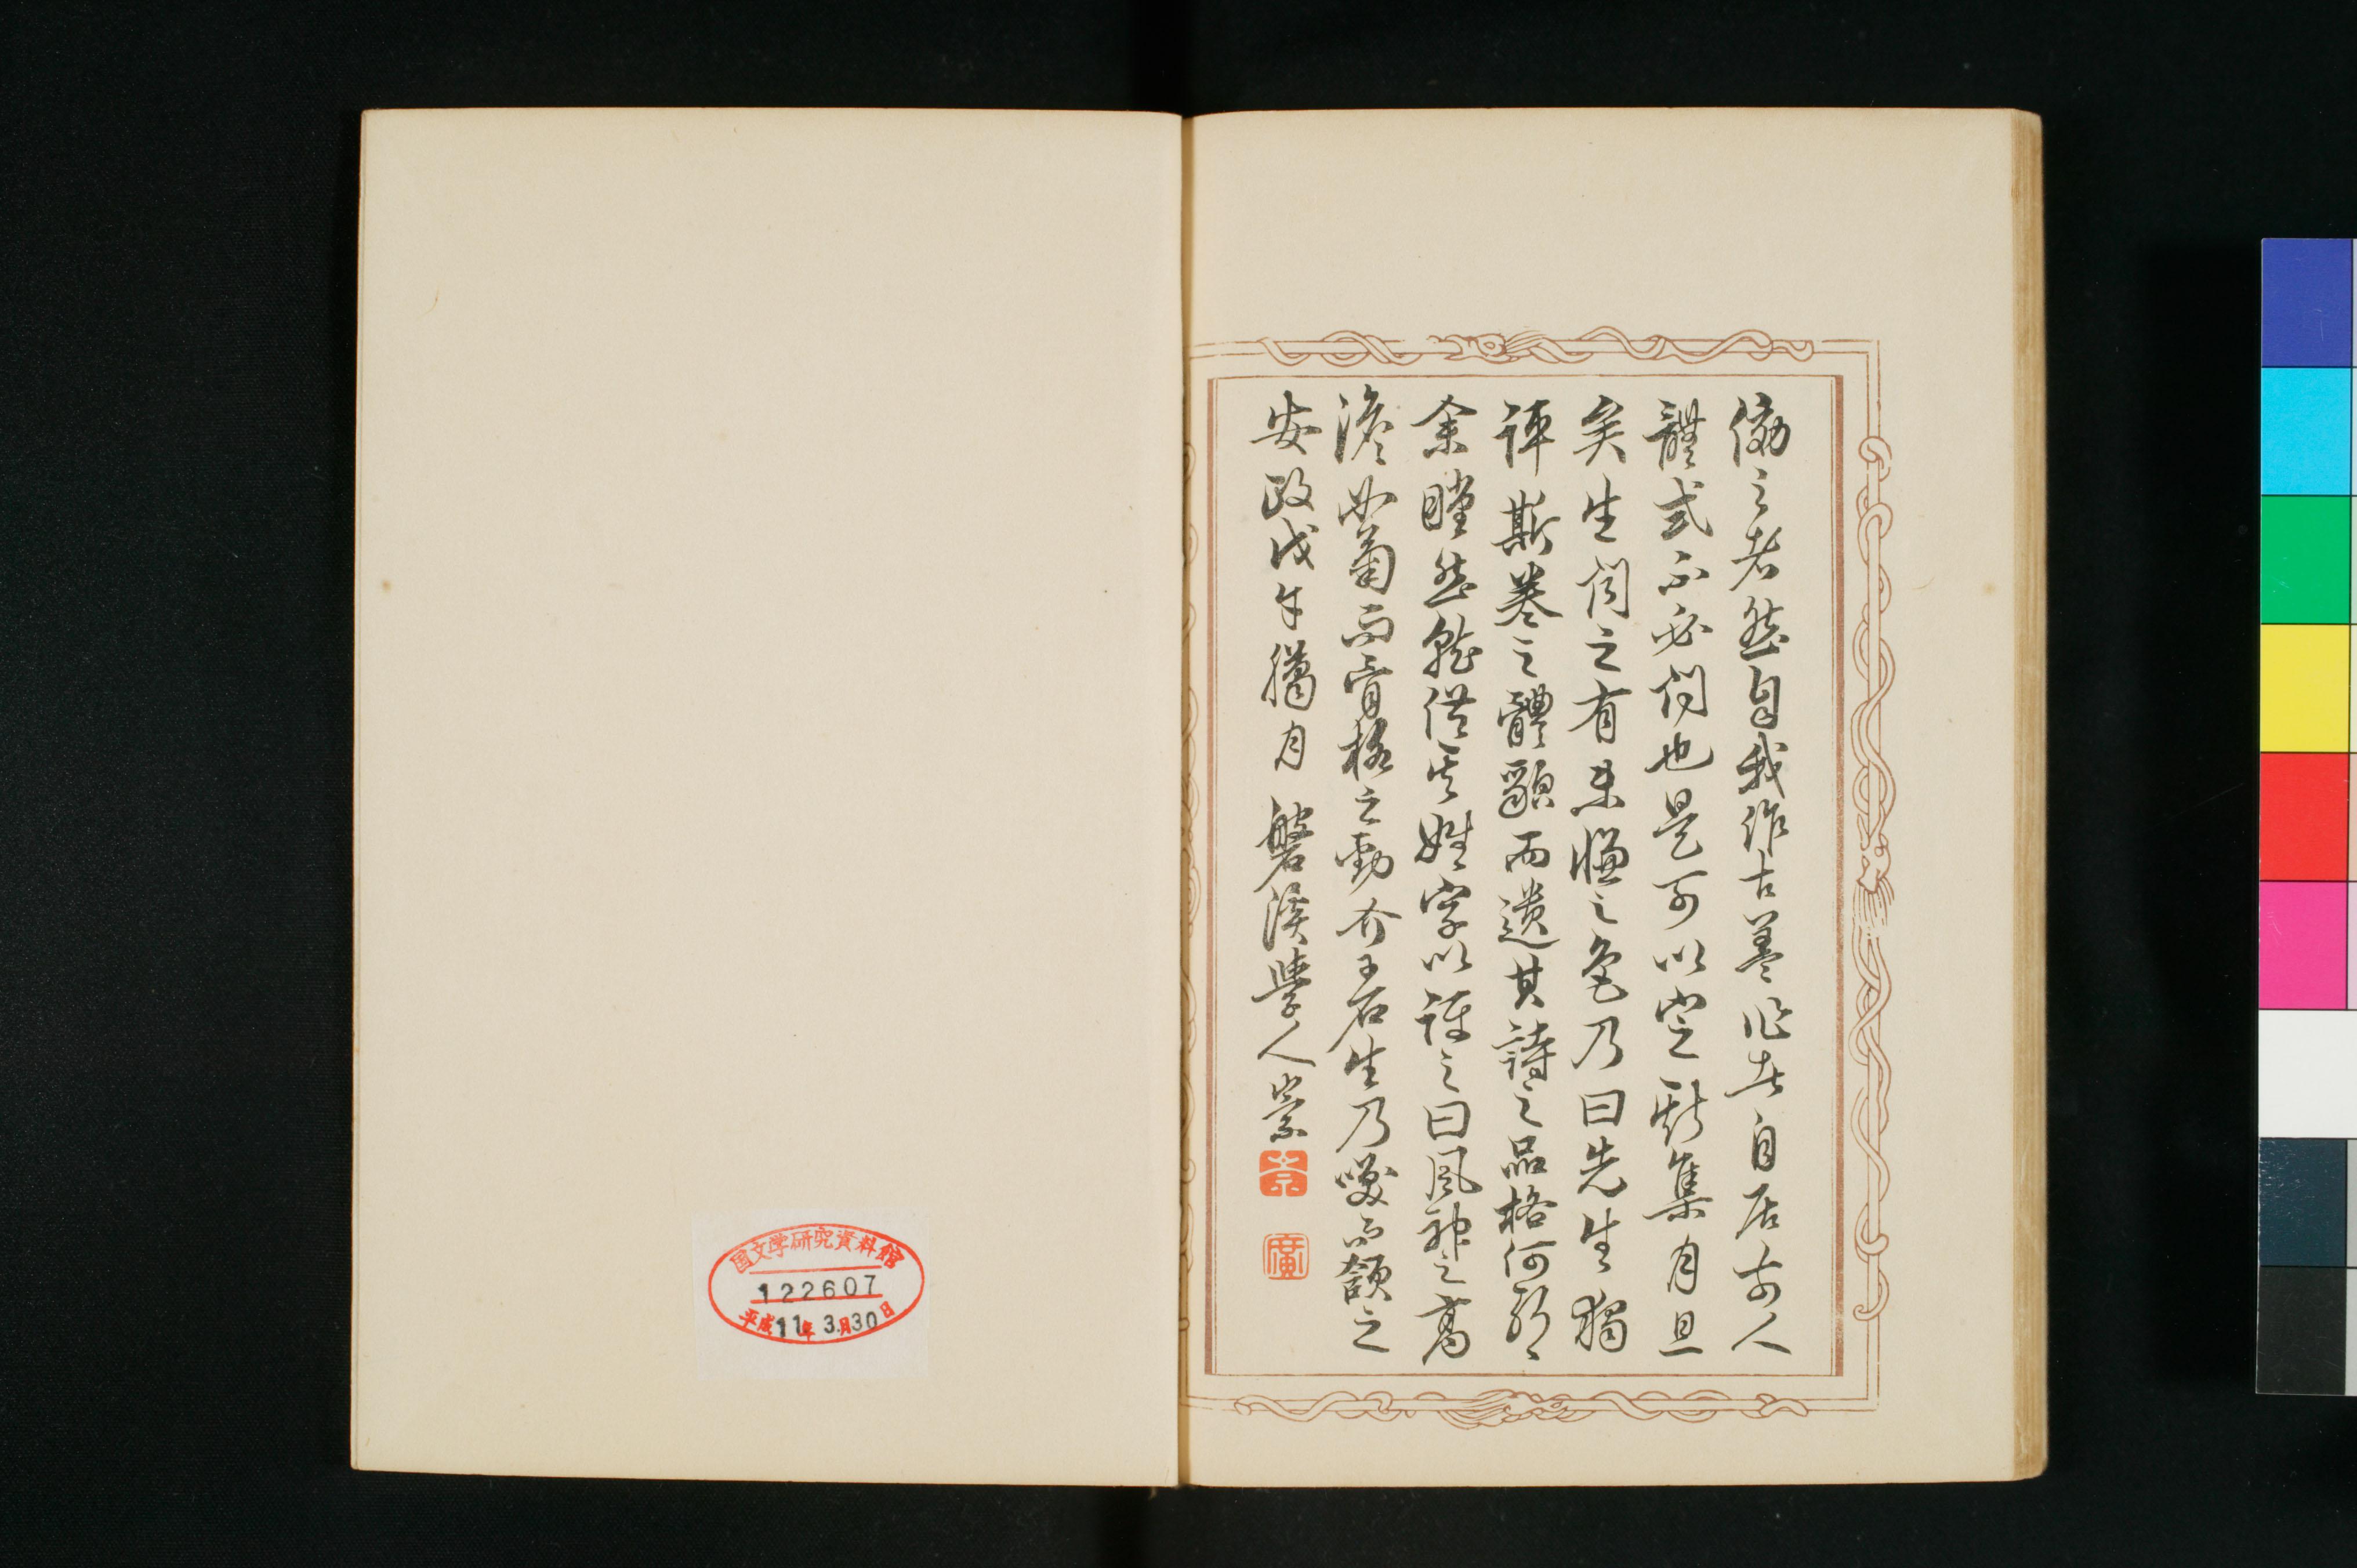 倣之者然自我作古蓋作者自居前人
體式不必問也是可以定斯集月旦
矣生問之有未慊之色乃曰先生獨
評斯卷之體貌而遺其詩之品格何耶
余瞠然輙借其姓字以評之曰風神之高
澹如菊而骨格之勁介于石生乃唆而頷之
安政戊午臘月 磐溪學人崇
崇
廣
国文学研究資料館
122607
平成11年3月30日